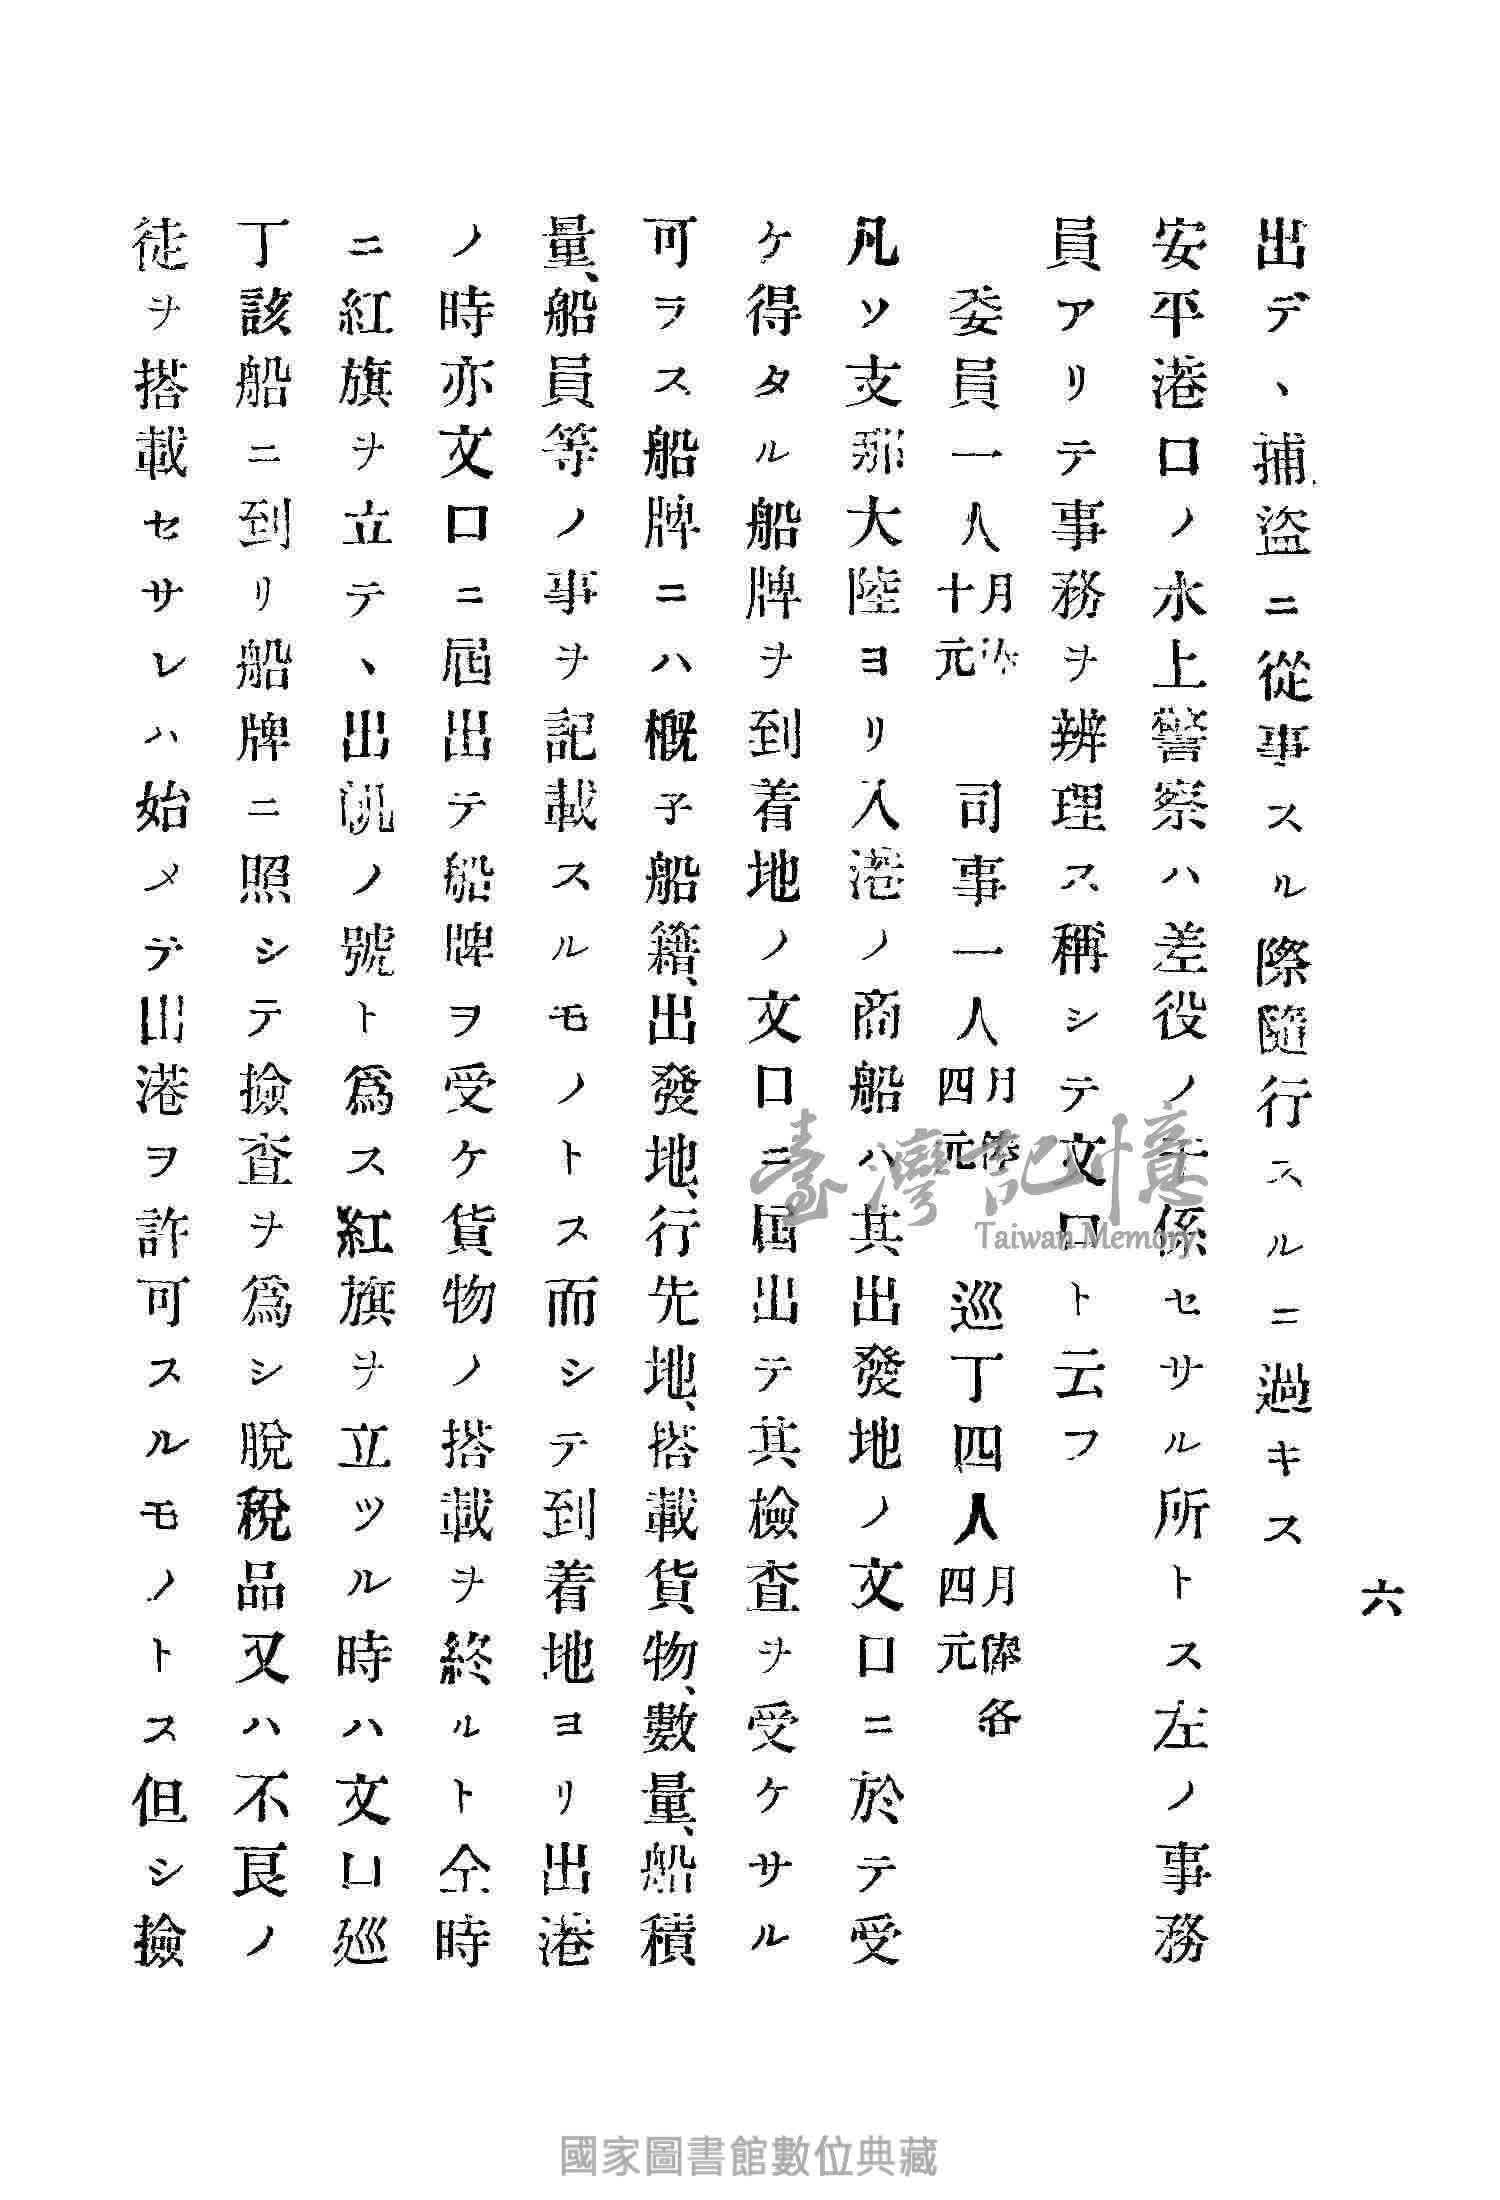 六
出デ、捕盜ニ從事スル際隨行スルニ過キス
安平港口ノ水上警察ハ差役ノ干係セサル所トス左ノ事務
員アリテ事務ヲ辨理ス稱シテ文口ト云フ
委員一人月俸十元 司事一人月俸四元 巡丁四人月俸各四元
凡ソ支那大陸ヨリ入港ノ商船ハ其出發地ノ文口ニ於テ受
ケ得タル船牌ヲ到着地ノ文口ニ届出テ其檢查ヲ受ケサル
可ラス船牌ニハ概子船籍、出發地、行先地、搭載貨物、數量、船積
量、船員等ノ事ヲ記載スルモノトス而シテ到着地ヨリ出港
ノ時亦文口ニ届出テ船牌ヲ受ケ貨物ノ搭載ヲ終ルト仝時
ニ紅旗ヲ立テ、出帆ノ號ト爲ス紅旗ヲ立ツル時ハ文口巡
丁該船ニ到リ船牌ニ照シテ撿查ヲ爲シ脫稅品又ハ不良ノ
徒ヲ搭載セサレハ始メテ出港ヲ許可スルモノトス但シ撿
臺灣記憶
Taiwan Memory
國家圖書館數位典藏